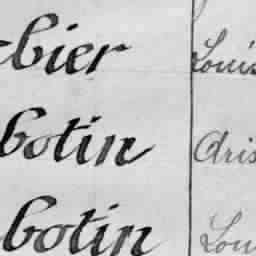 -bier Louis
botin Aris
botin Lou